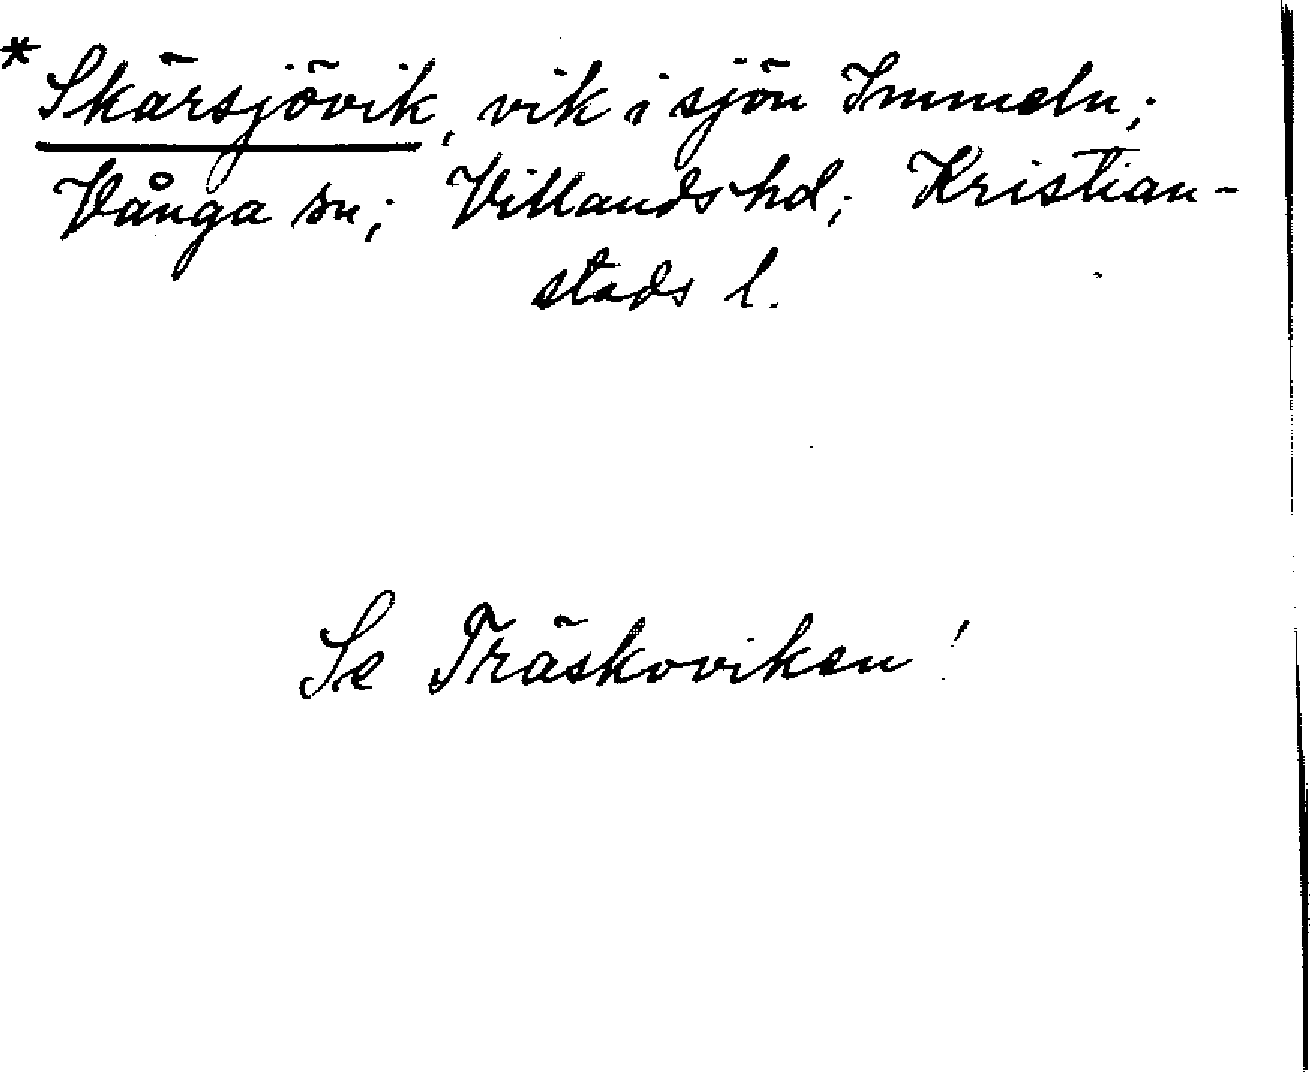 * Skärsjövik, vik i sjön Immeln;
Vånga sn; Villands hd; Kristian-
stads l.
Se Träskoviken!